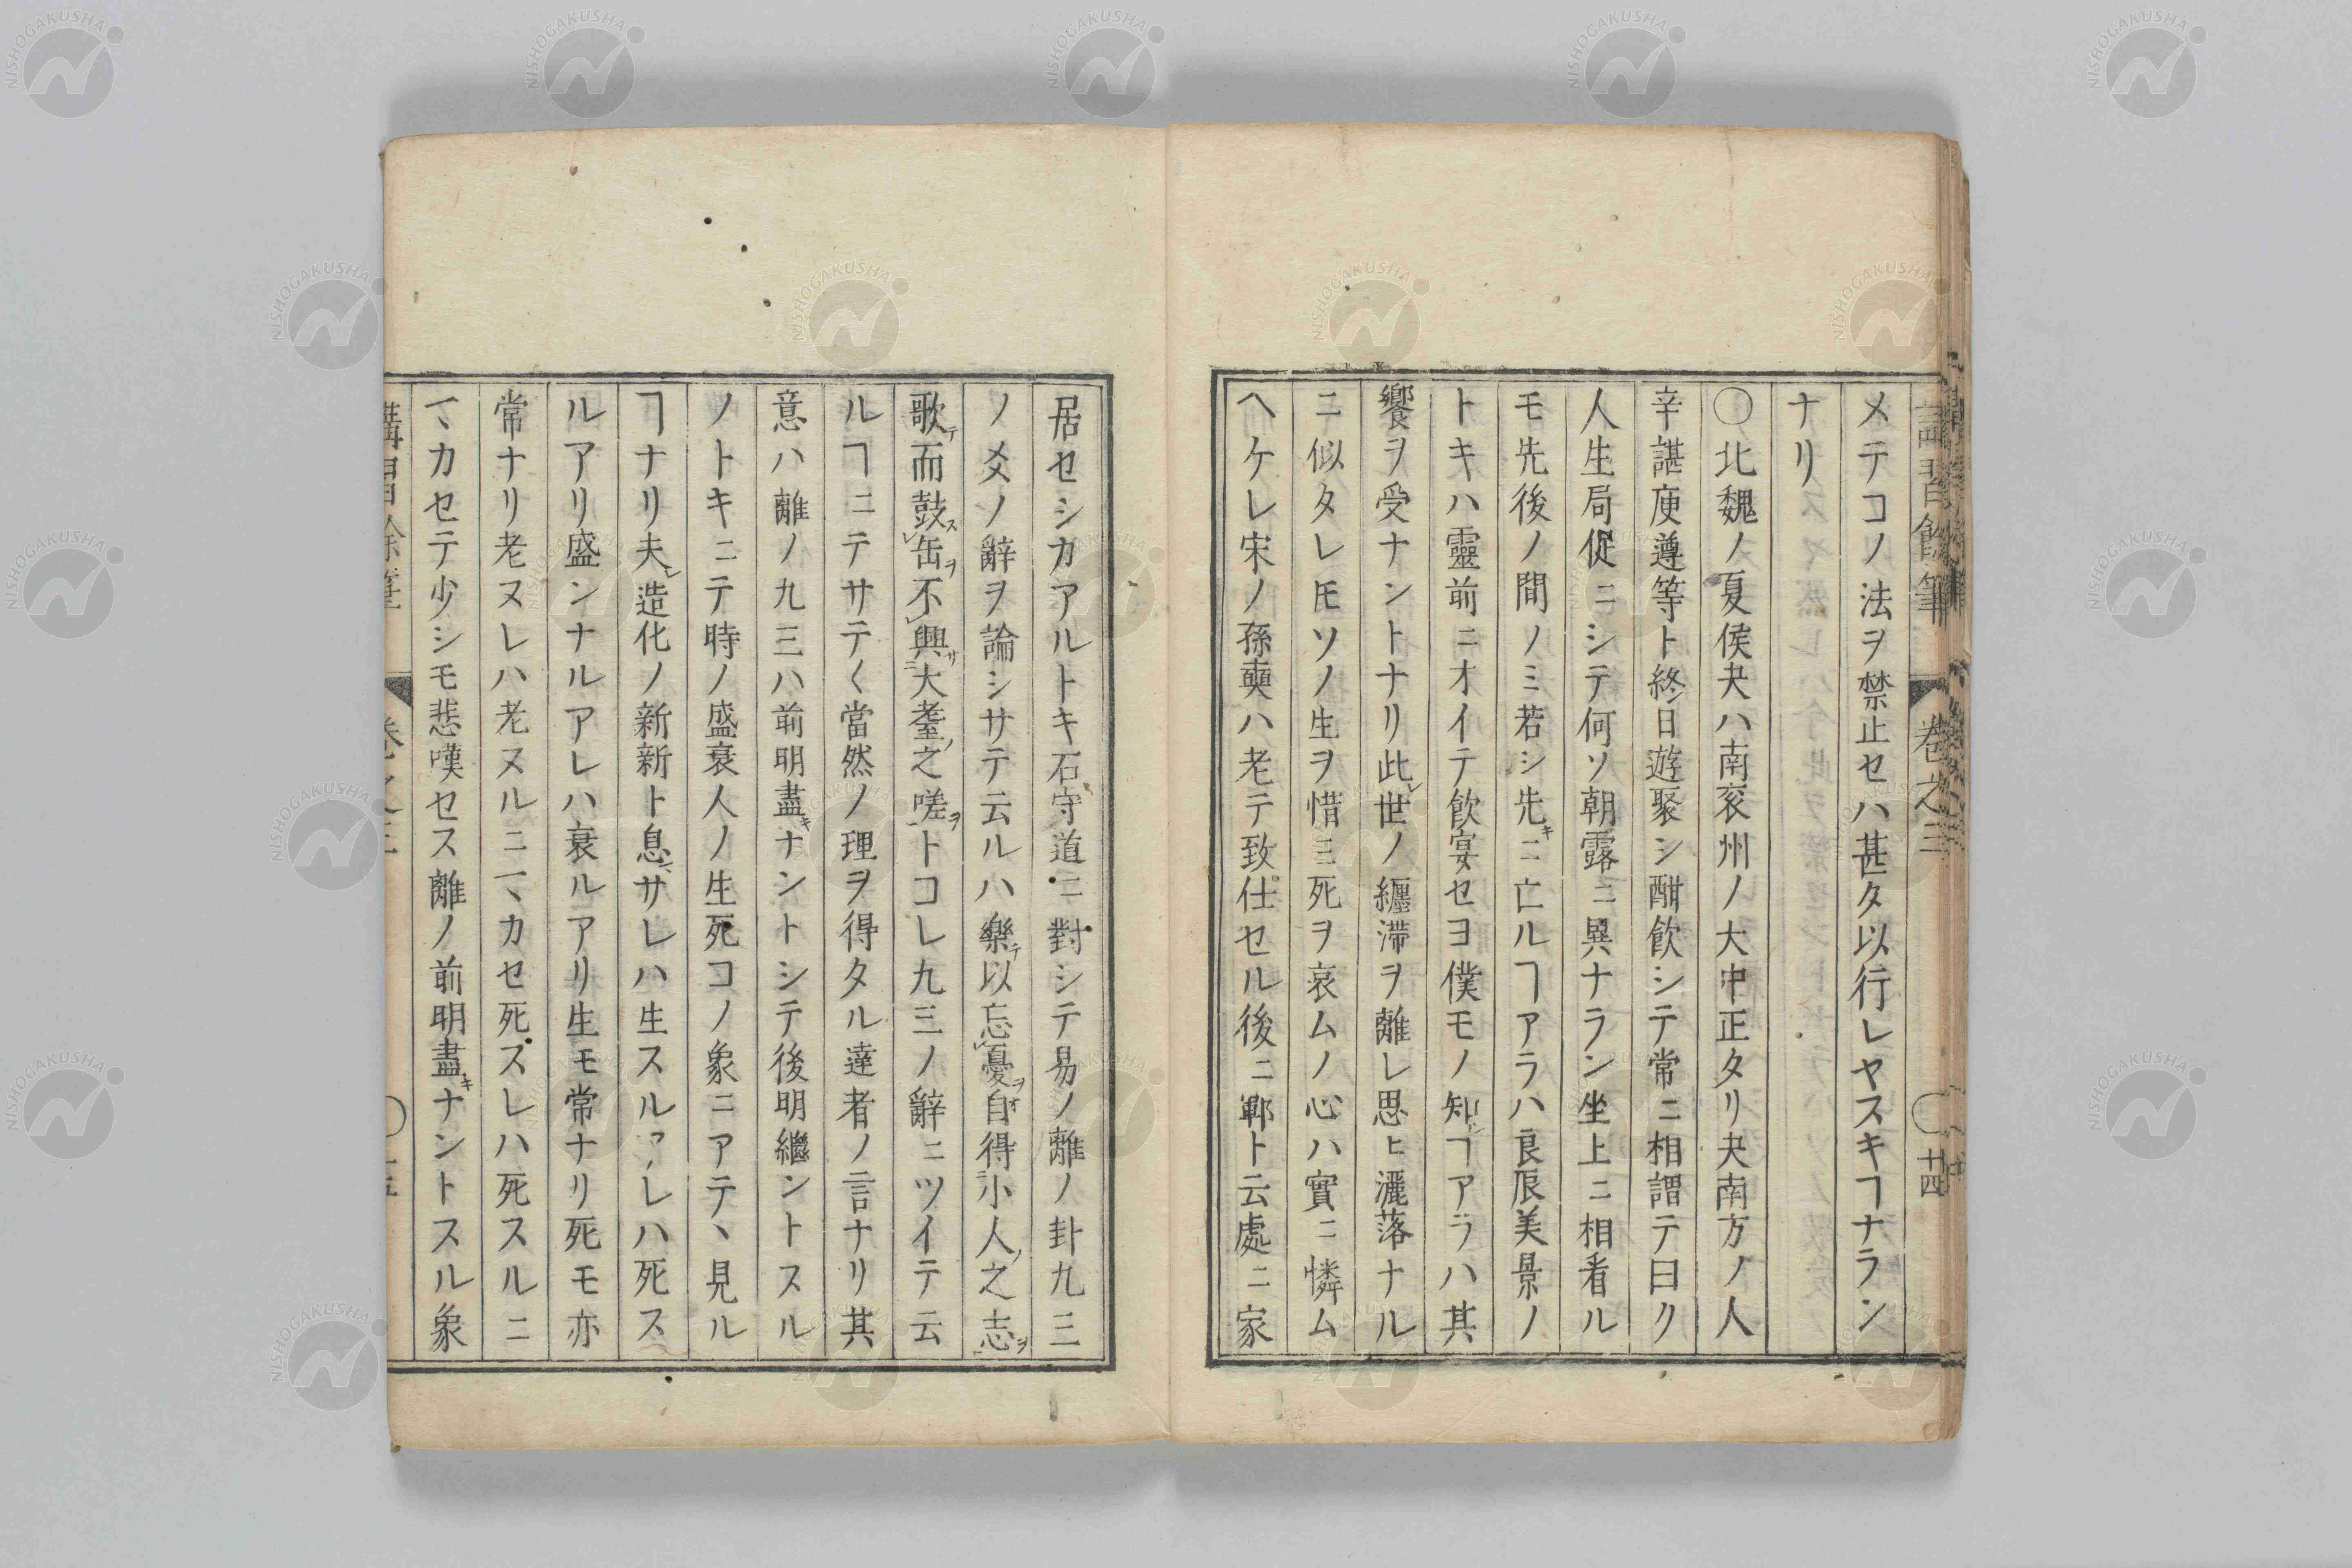 メテコノ法ヲ禁止セハ甚タ以行レヤスキヿナラン
ナリ
〇北魏ノ夏侯夬ハ南兖州ノ大中正タリ夬南方ノ人
辛諶庾遵等ト終日遊聚シ酣飲シテ常ニ相謂テ曰ク
人生局促ニシテ何ソ朝露ニ異ナラン坐上ニ相看ル
モ先後ノ間ノミ若シ先キニ亡ルヿアラハ良辰美景ノ
トキハ靈前ニオイテ飲宴セヨ僕モノ知ヿアラハ其
饗ヲ受ナントナリ此レ世ノ纏滞ヲ離レ思ヒ灑落ナル
ニ似タレ𪜈ソノ生ヲ惜ミ死ヲ哀ムノ心ハ實ニ憐ム
ヘケレ宋ノ孫奭ハ老テ致仕セル後ニ鄆ト云處ニ家
居セシカアルトキ石守道ニ對シテ易ノ離ノ卦九三
ノ爻ノ辭ヲ論シサテ云ルハ樂テ以忘レ憂ヲ自得小人ノ之志ヲ
歌テ而鼓スレ缶ヲ不レ興サ大耋ノ之嗟ヲトコレ九三ノ辭ニツイテ云
ルヿニテサテ〱當然ノ理ヲ得タル達者ノ言ナリ其
意ハ離ノ九三ハ前明盡キナントシテ後明繼ントスル
ノトキニテ時ノ盛衰人ノ生死コノ象ニアテヽ見ル
ヿナリ夫レ造化ノ新新ト息ンサレハ生スルアレハ死ス
ルアリ盛ンナルアレハ衰ルアリ生モ常ナリ死モ亦
常ナリ老ヌレハ老ヌルニマヽカセ死スレハ死スルニ
マヽカセテ少シモ悲嘆セス離ノ前明盡キナントスル象
講習餘筆 卷之三 〇十四